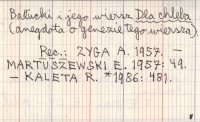 Bałucki i jego wiersz Dla chleba
(anegdota o genezie tego wiersza).
Rec.: ZYGA A. 1957. –
MARTUSZEWSKI E. 1957: 49.
– KALETA R. *1986: 481.